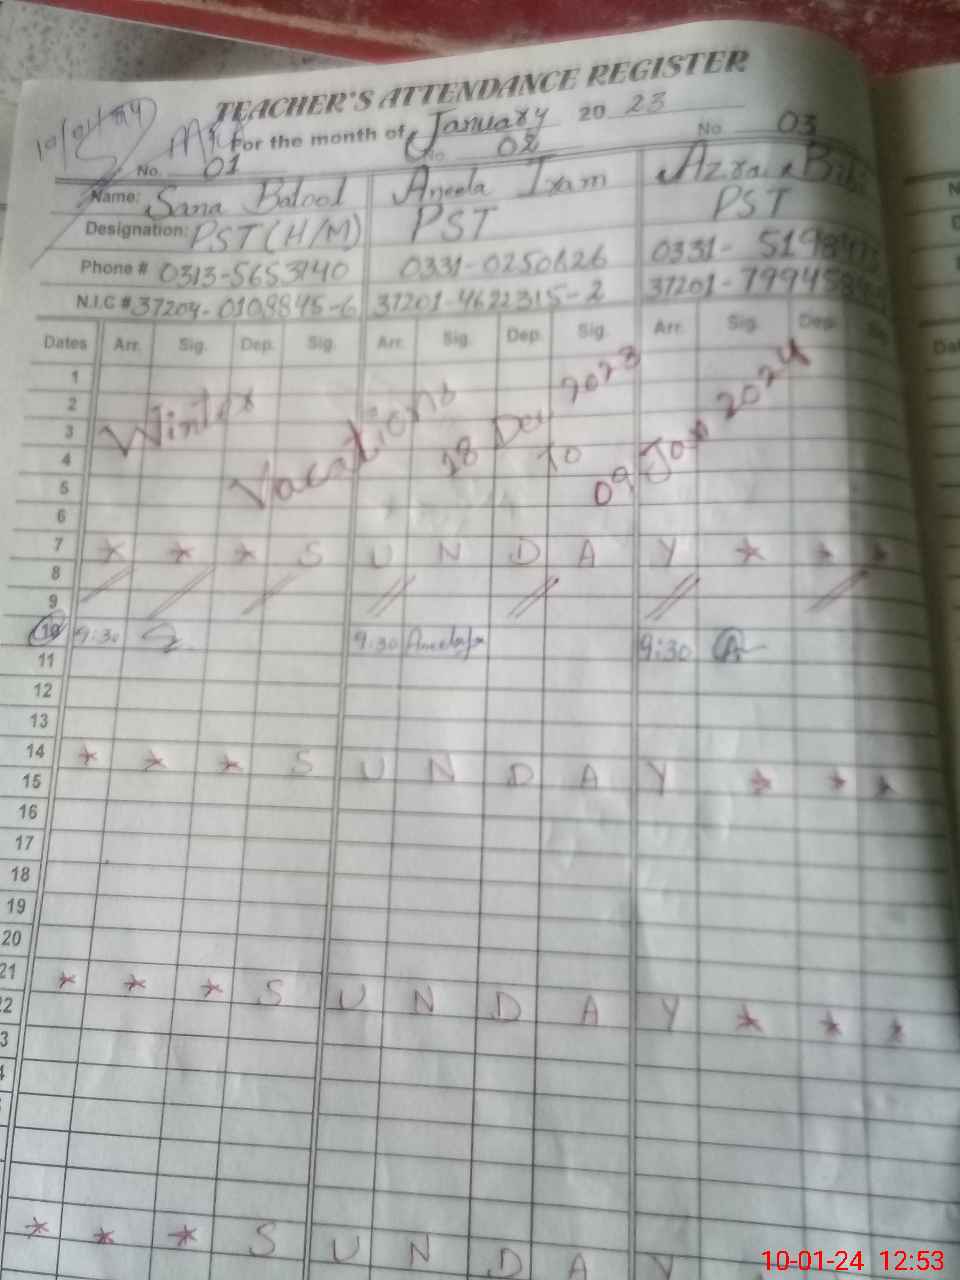 TEACHER'S ATTENDANCE REGISTER
10/01/24
For the month of January 20 23
No. 01 No. 02 No. 03
Name: Sana Batool Aneela Iram Azra Bibi
Designation: PST (H/M) PST PST
Phone # 0313-5653140 0331-0250626 0331-
N.I.C # 37204-0109845-6 37201-4622315-2 37201-
Dates Arr. Sig. Dep. Sig. Arr. Sig. Dep. Sig. Arr. Sig. Dep.
1
2
3
4
5
6
Winter Vacations 18 Dec, 2023 to 09 Jan 2024
7 * * * S U N D A Y * * *
8
9
10 9:30 9:30 Aneela 9:30 A
11
12
13
14 * * * S U N D A Y * * *
15
16
17
18
19
20
21 * * * S U N D A Y * * *
22
3
4
* * * S U N D A Y
10-01-24 12:53